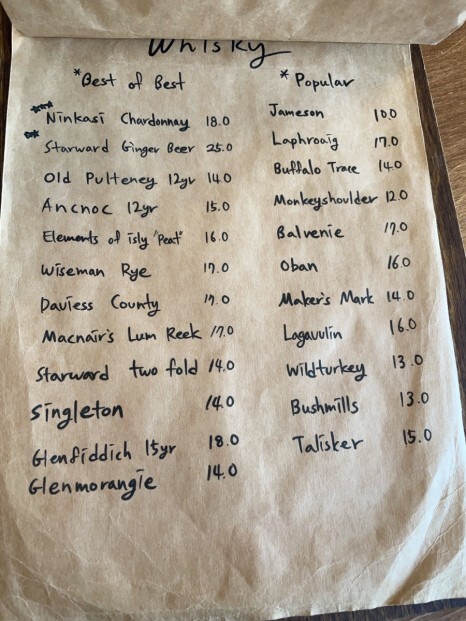 Whisky
*Best of Best
*** Ninkasi Chardonnay 18.0
** Starward Ginger Beer 25.0
Old Pulteney 12yr 14.0
Ancnoc 12yr 15.0
Elements of isly "Peat" 16.0
Wiseman Rye 17.0
Daviess County 17.0
Macnair's Lum Reek 17.0
Starward two fold 14.0
Singleton 14.0
Glenfiddich 15yr 18.0
Glenmorangie 14.0
* Popular
Jameson 10.0
Laphroaig 17.0
Buffalo Trace 14.0
Monkeyshoulder 12.0
Balvenie 17.0
Oban 16.0
Maker's Mark 14.0
Lagavulin 16.0
Wildturkey 13.0
Bushmills 13.0
Talisker 15.0